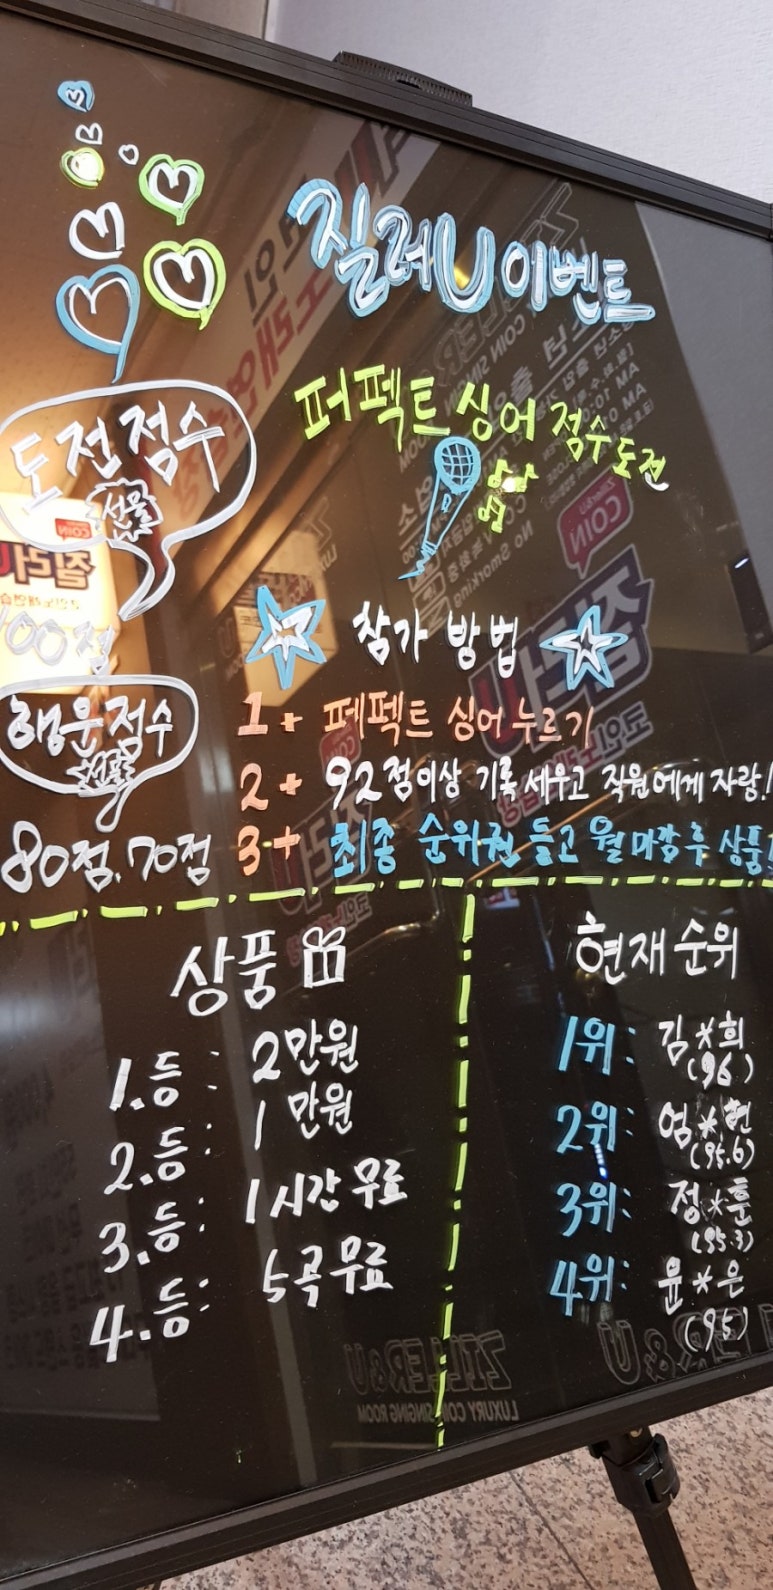 질러U이벤트
퍼펙트 싱어 점수 도전
도전점수
선물
100점
행운점수
선물
80점, 70점
참가 방법
1+ 페펙트 싱어 누르기
2+ 92점이상 기록 세우고 직원에게 자랑!
3+ 최종 순위권 들고 월 마감 후 상품!
상품
1.등: 2만원
2.등: 1만원
3.등: 1시간 무료
4.등: 5곡 무료
현재 순위
1위: 김*희
(96)
2위: 엄*현
(95.6)
3위: 정*훈
(95.3)
4위: 윤*은
(95)
ZILLER&U
LUXURY COIN SINGING ROOM
COIN
질러U